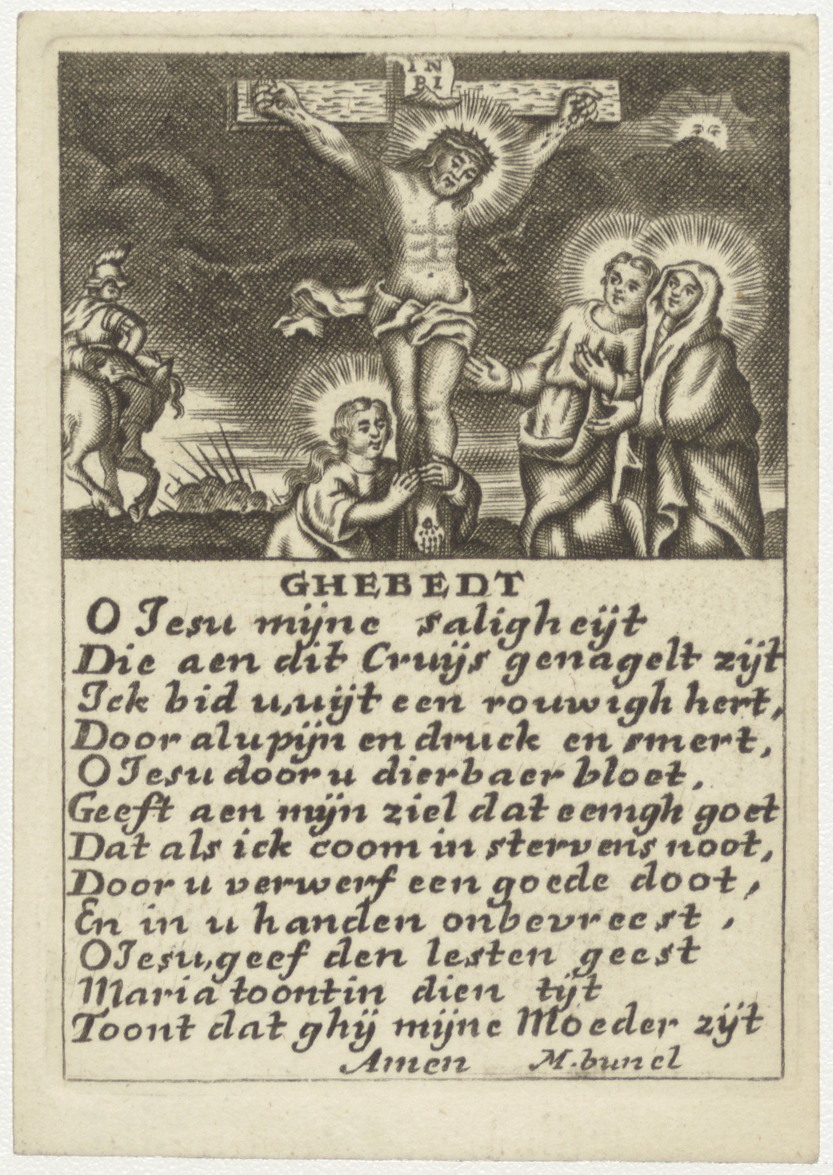 IN
RI
GHEBEDT
O Jesu mijne saligheijt
Die aen dit Cruijs genagelt zijt
Ick bid u, uijt een rouwigh hert,
Door al u pijn en druck en smert,
O Jesu door u dierbaer bloet,
Geeft aen mijn ziel dat eewigh goet
Dat als ick coom in stervens noot,
Door u verwerf een goede doot,
En in u handen onbevreest,
O Jesu, geef den lesten geest
Maria toont in dien tijt
Toont dat ghij mijne Moeder zijt
Amen M. bunel